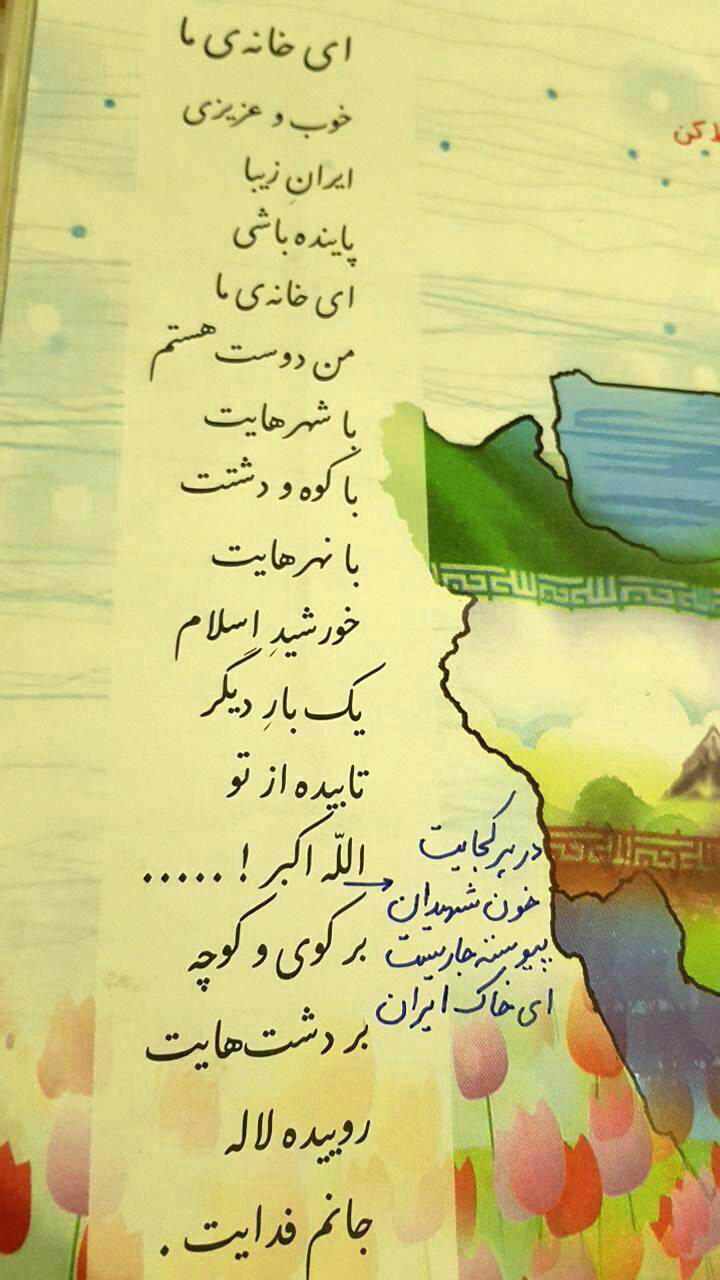 ای خانه‌ی ما
خوب و عزیزی
ایرانِ زیبا
پاینده باشی
ای خانه‌ی ما
من دوست هستم
با شهرهایت
با کوه و دشتت
با نهرهایت
خورشیدِ اِسلام
یک بارِ دیگر
تابیده از تو
اللّه اکبر ! .....
بر کوی و کوچه
بر دشت‌هایت
روییده لاله
جانم فدایت .
در هر کجایت
خون شهیدان
پیوسته جاریست
ای خاک ایران
کن